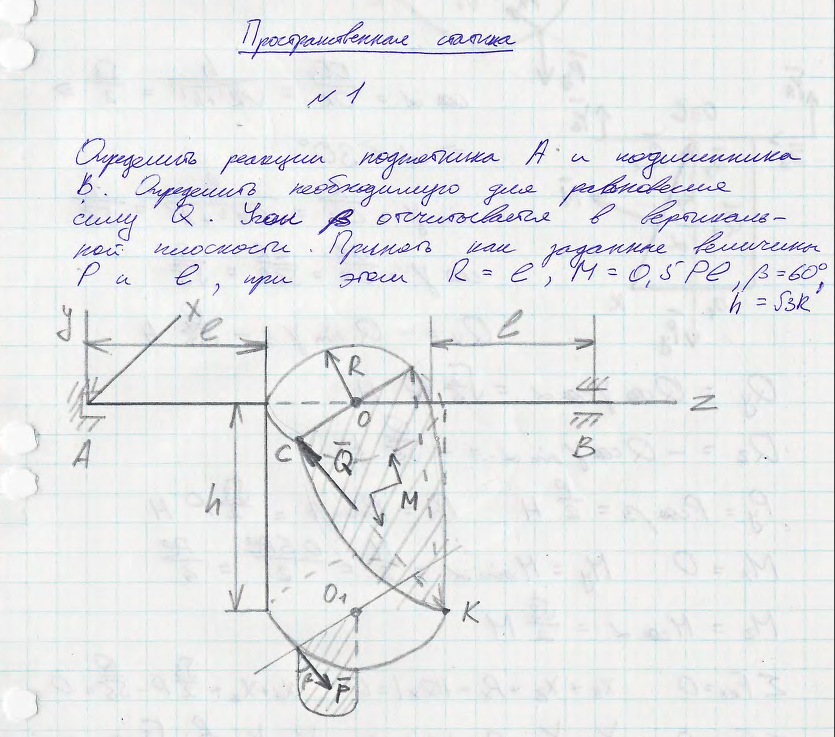 Пространственная статика
№ 1
Определить реакции подпятника А и подшипника
В. Определить необходимую для равновесия
силу Q. Угол β отсчитывается в вертикаль-
ной плоскости. Принять как заданные величины
P и l, при этом R = l, M = 0,5 Pl, β = 60°,
h = √3R
y x l R l
A O B z
C Q̄
h M
O₁ K
β P̄